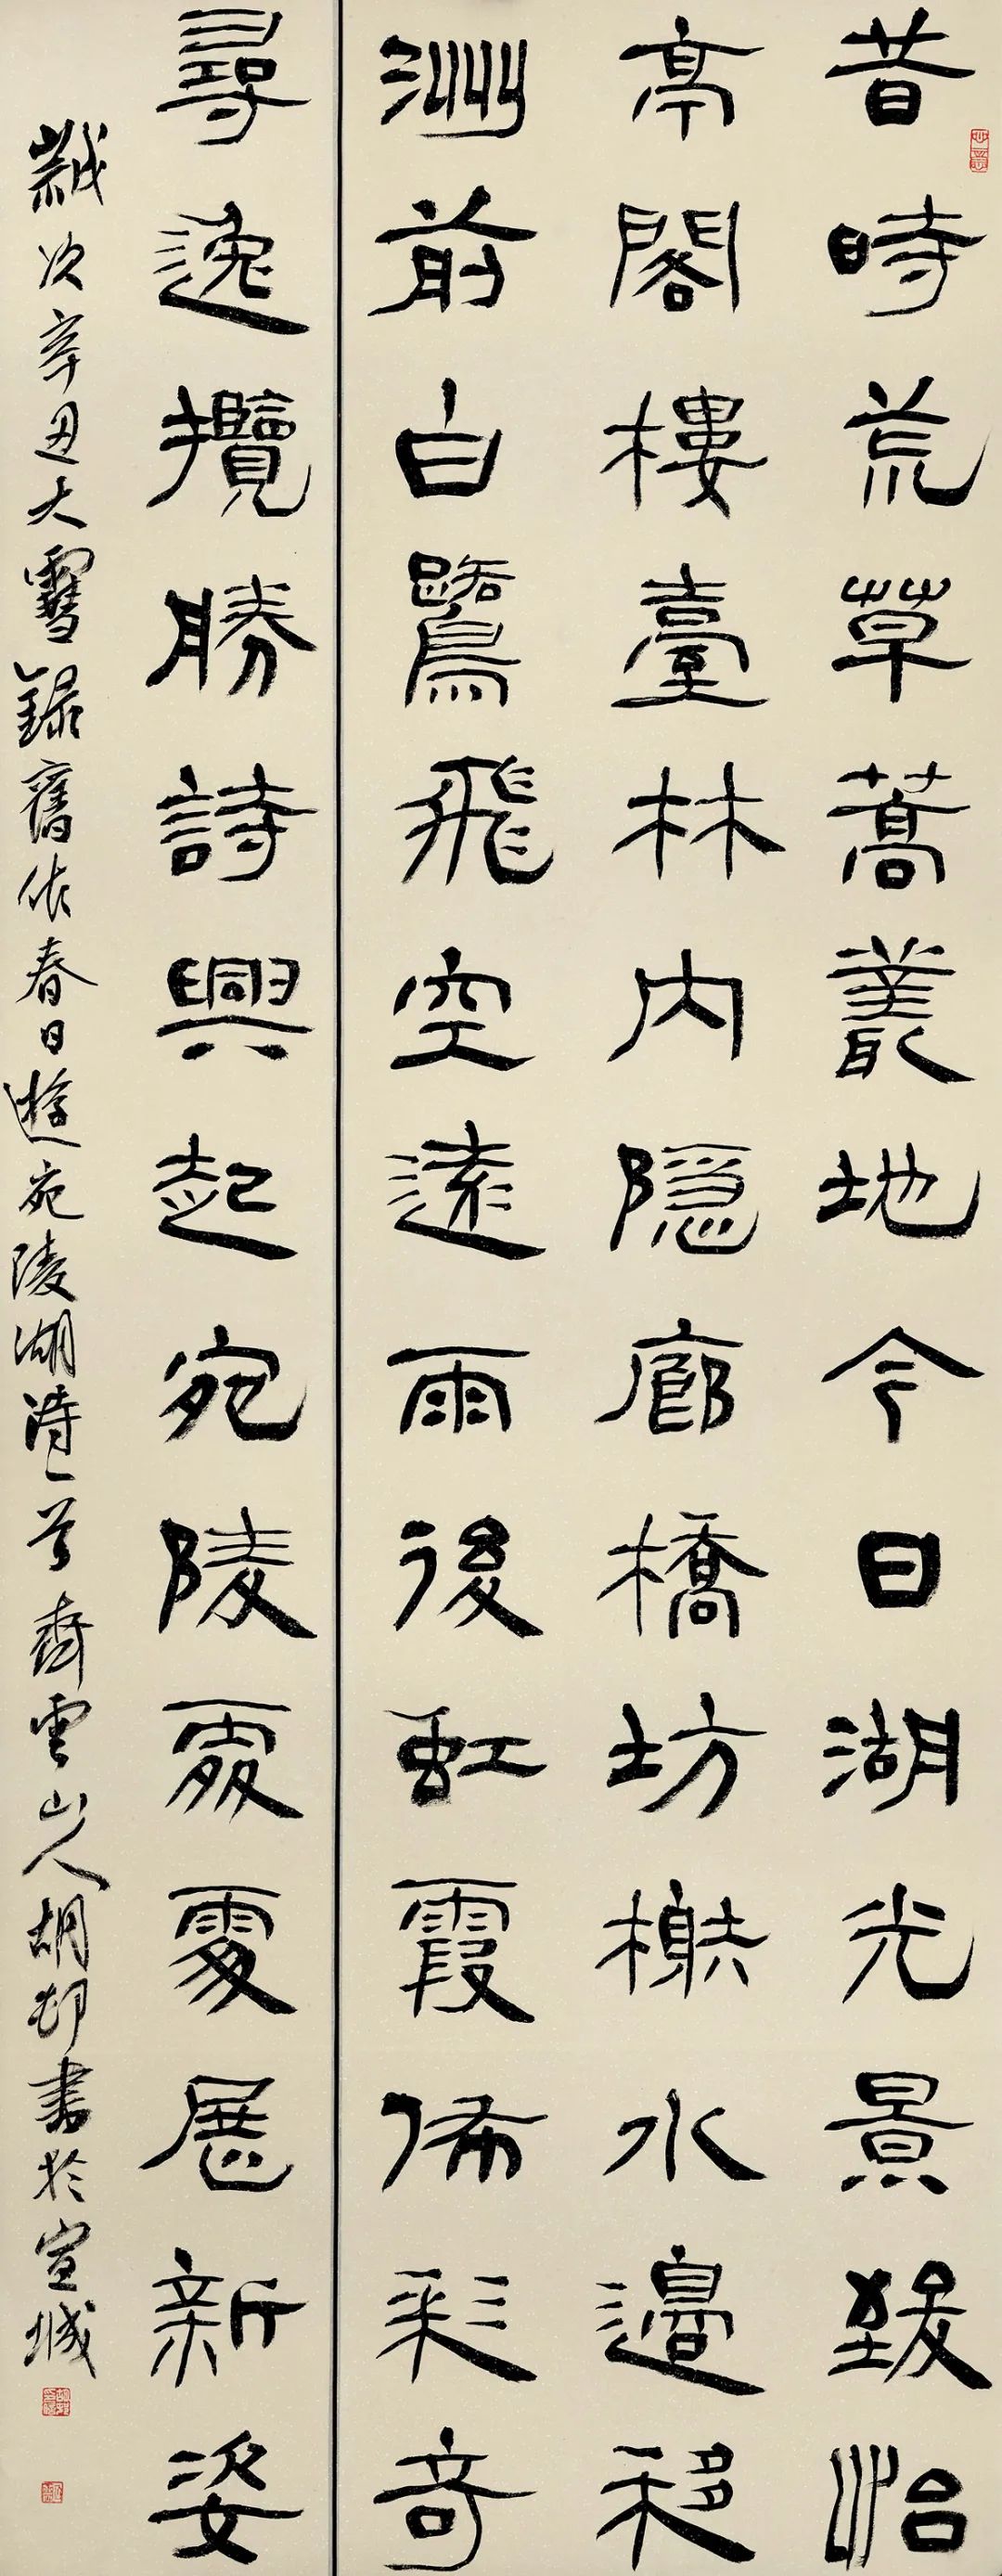 昔時荒草蒿叢地今日湖光景致治
亭閣樓臺林內隱廊橋坊榭水邊移
洲前白鷺飛空遠雨後虹霞佈彩奇
尋逸攬勝詩興起宛陵處處展新姿
歲次辛丑大雪錄舊作春日遊宛陵湖詩一首齊雲山人胡邨書於宣城